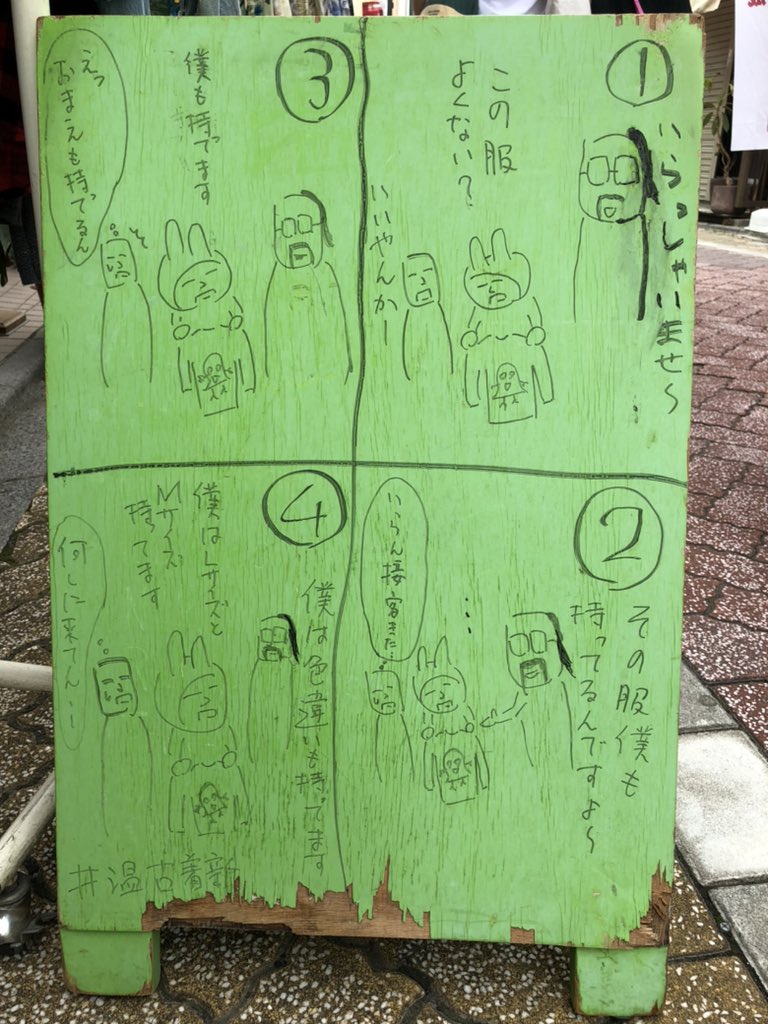 ①
いらっしゃいませ〜
この服
よくない？
いいやんかー
②
その服僕も
持ってるんですよ〜
…
いらん接客きた…
③
僕も持ってます
えっ
おまえも持ってるん
④
僕は色違いも持ってます
僕はLサイズと
Mサイズ
持ってます
何しに来てん…！
#温古着新